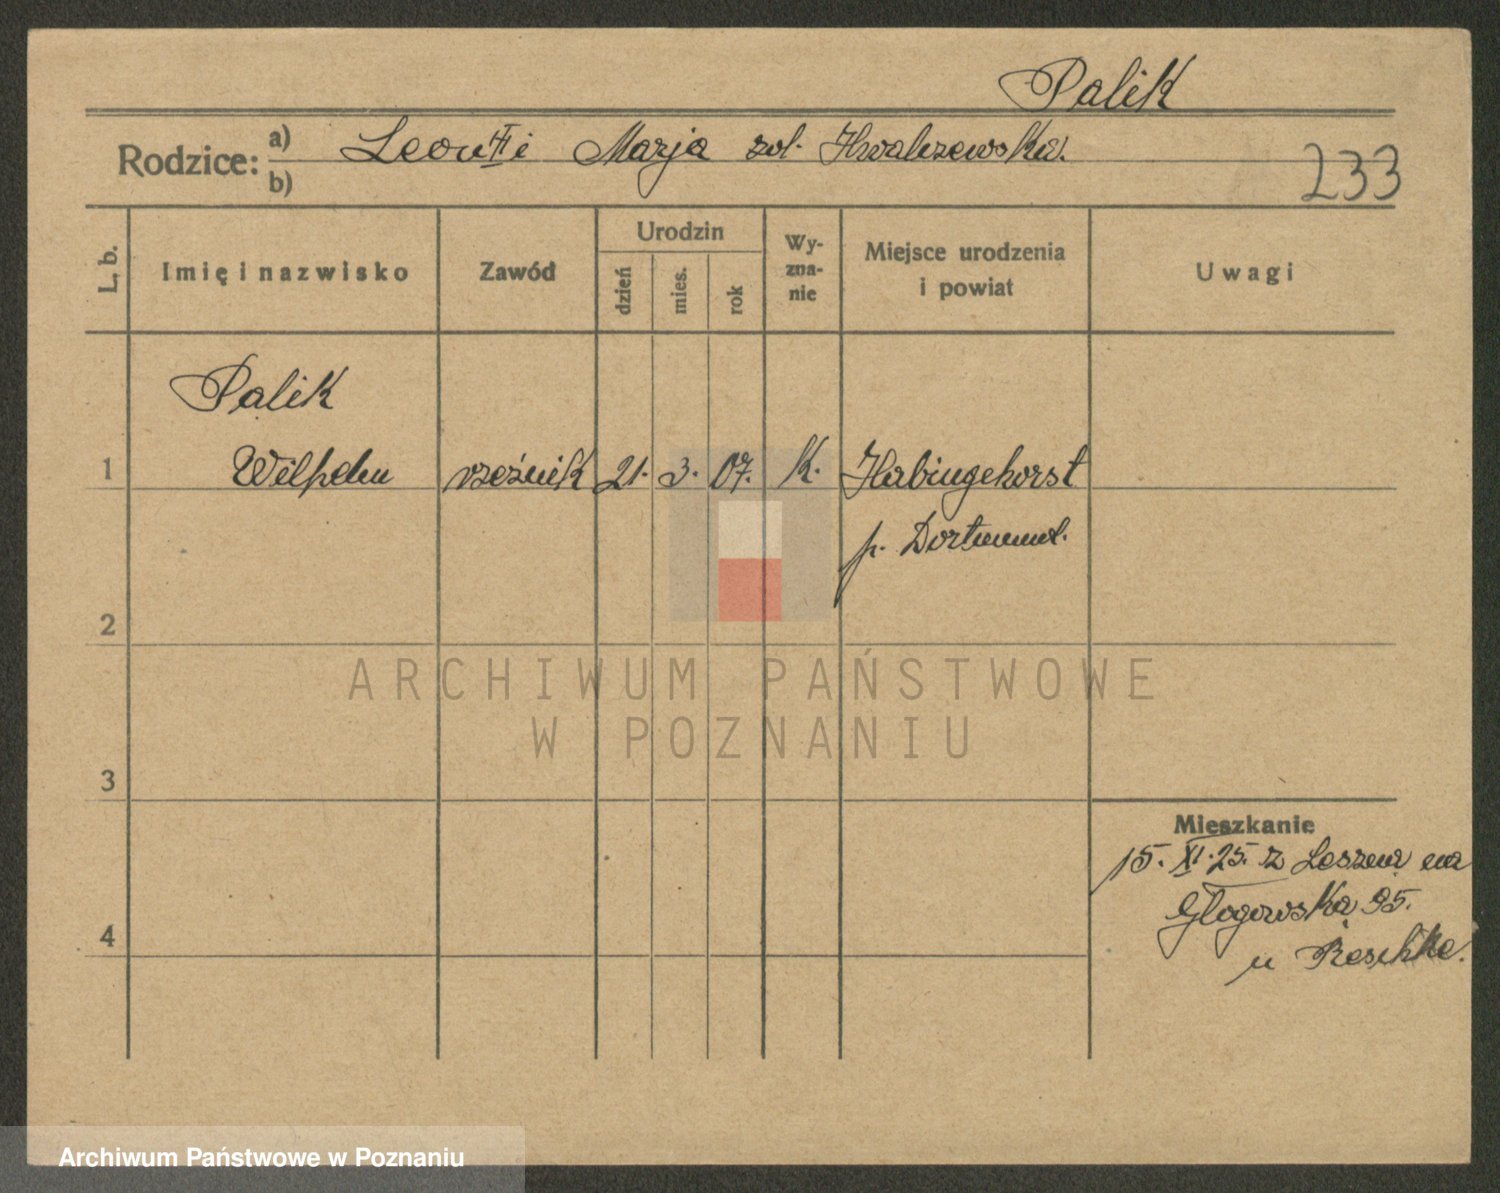 Palik
Rodzice: a) Leon i Marja zd. Chwalczewska.
b)
233
L. b.
Imię i nazwisko
Zawód
Urodzin
dzień
mies.
rok
Wy-
zna-
nie
Miejsce urodzenia
i powiat
Uwagi
Palik
1 Wilhelm rzeźnik 21. 3. 07. K. Habingehorst
p. Dortmund.
2
ARCHIWUM PAŃSTWOWE
W POZNANIU
3
Mieszkanie
15. XI. 25. z Leszna na
Głogowska 95.
u Reschke.
4
Archiwum Państwowe w Poznaniu